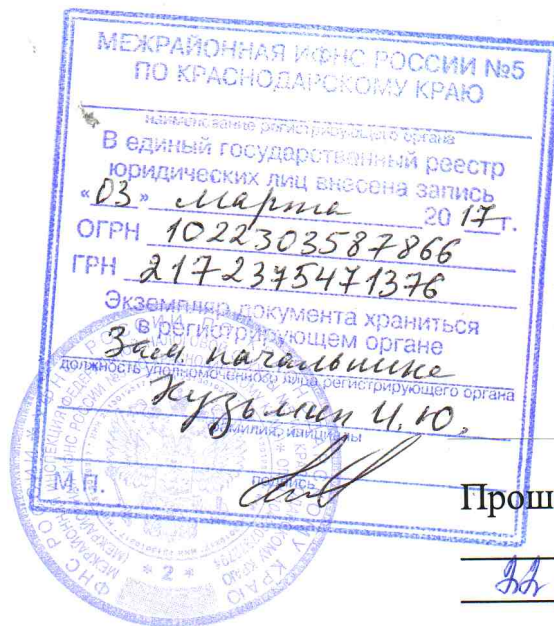 МЕЖРАЙОННАЯ ИФНС РОССИИ №5
ПО КРАСНОДАРСКОМУ КРАЮ
наименование регистрирующего органа
В единый государственный реестр
юридических лиц внесена запись
«03» марта 2017г.
ОГРН 1022303587866
ГРН 2172375471376
Экземпляр документа храниться
в регистрирующем органе
Зам. начальника
должность уполномоченного лица регистрирующего органа
Кузьмин И. Ю.
фамилия, инициалы
подпись
М.П.
* 2 *
Прош
22